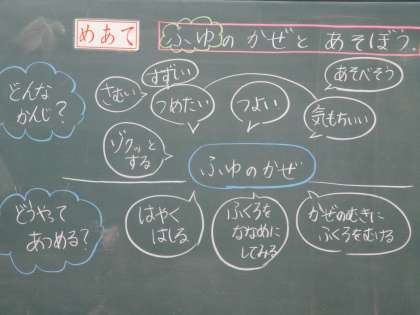 めあて
ふゆの かぜと あそぼう.
どんな
かんじ?
さむい
すずしい
つめたい
つよい
あそべそう
気もちいい
ゾクッと
する
ふゆのかぜ
どうやって
あつめる?
はやく
はしる
ふくろを
ななめに
してみる
かぜのむきに
ふくろをむける